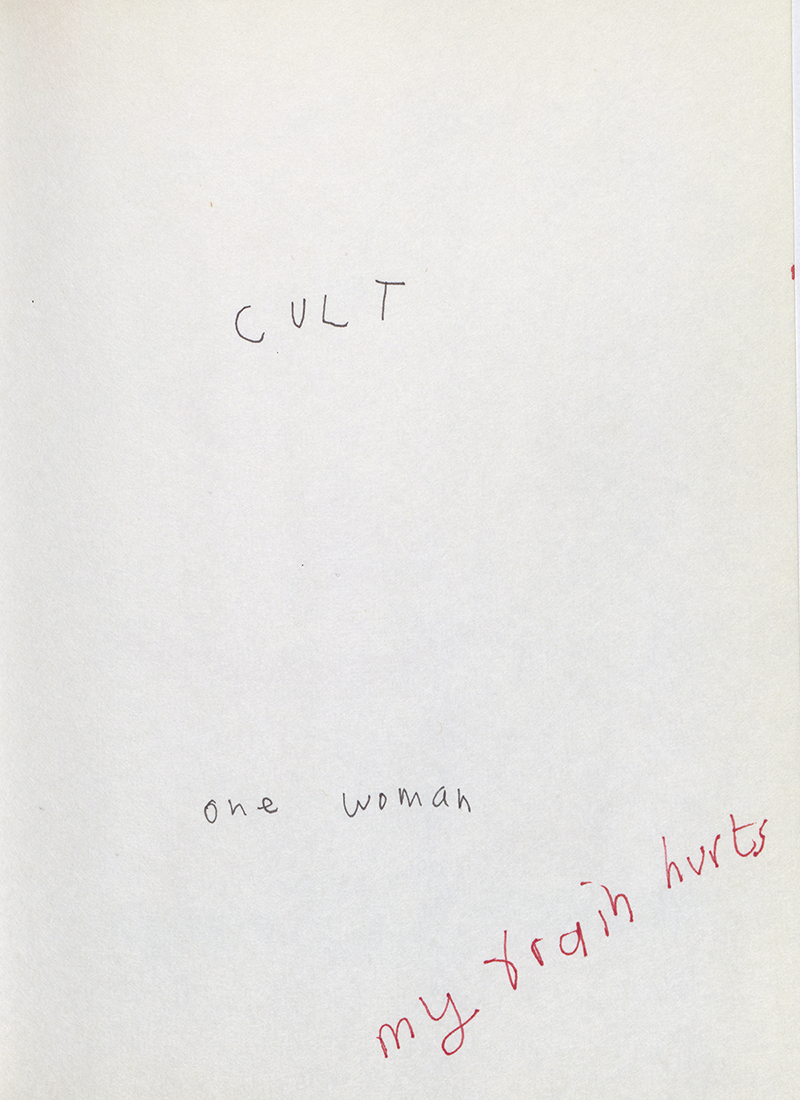 CULT
one woman
my train hurts